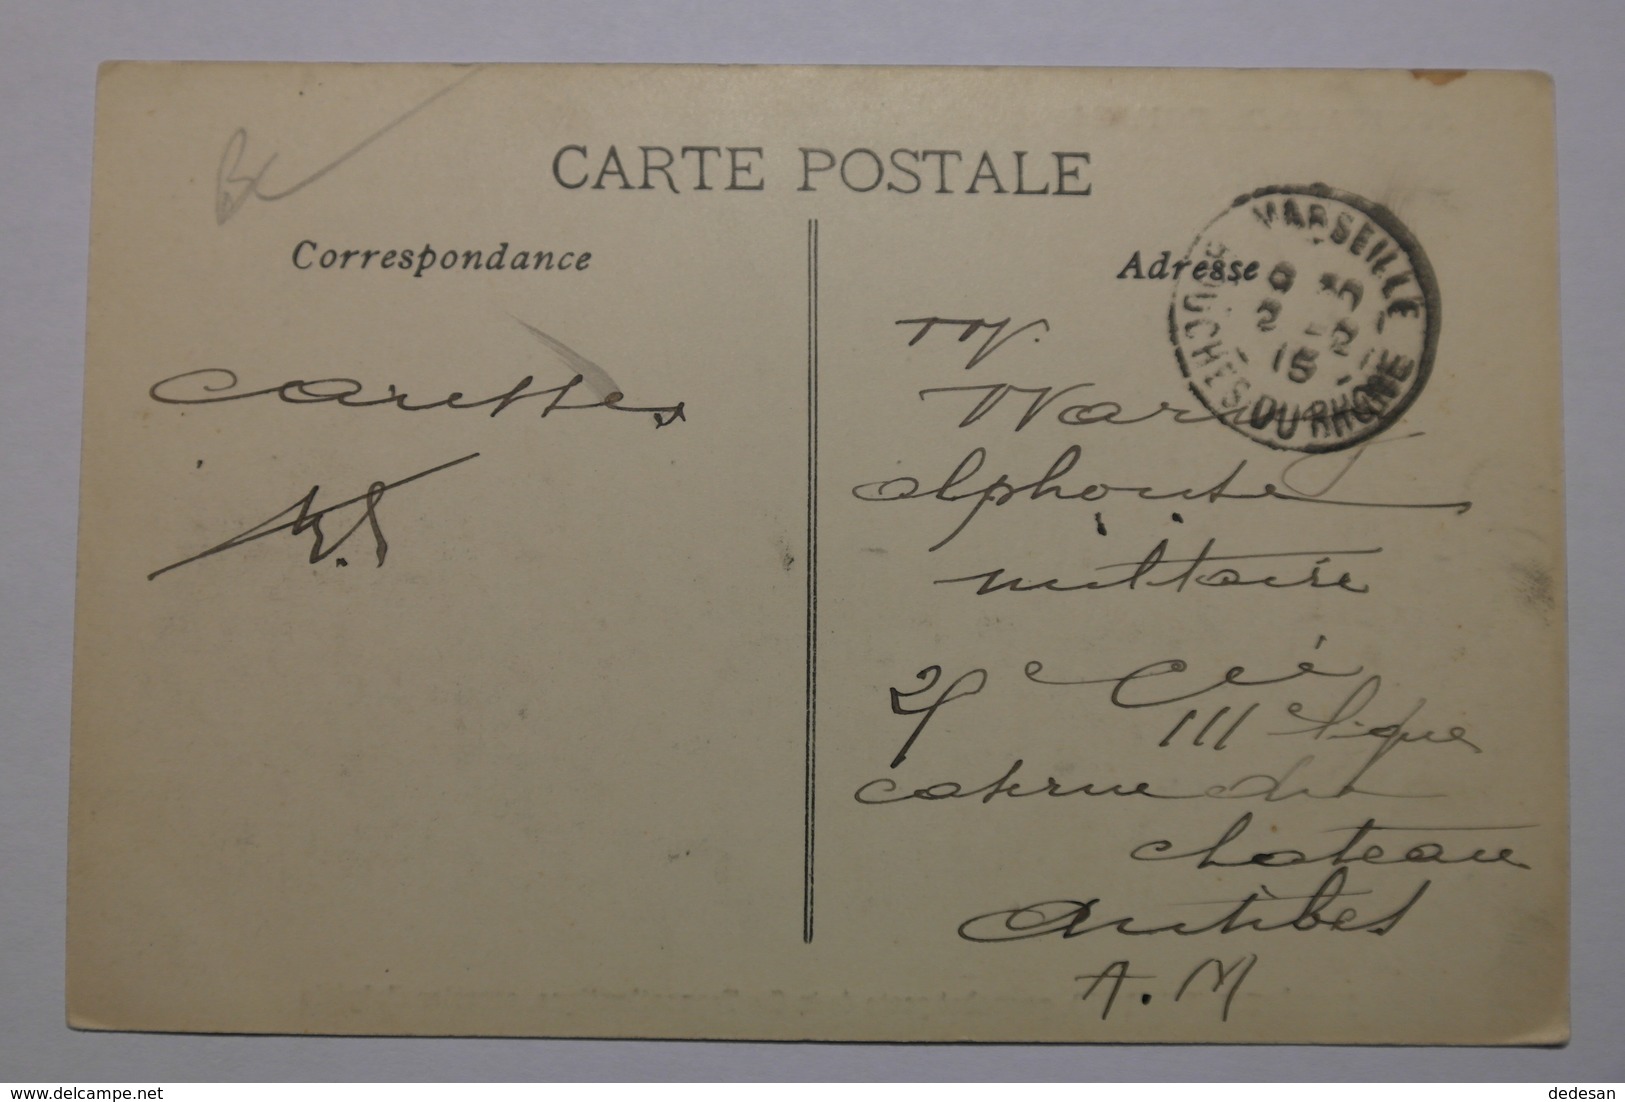 CARTE POSTALE
Correspondance
Adresse
MARSEILLE
BOUCHES DU RHONE
15
caresses
M.
alphonse
militaire
Cie
111 e ligne
caserne du
chateau
Antibes
A. M
delcampe.net
dedesan